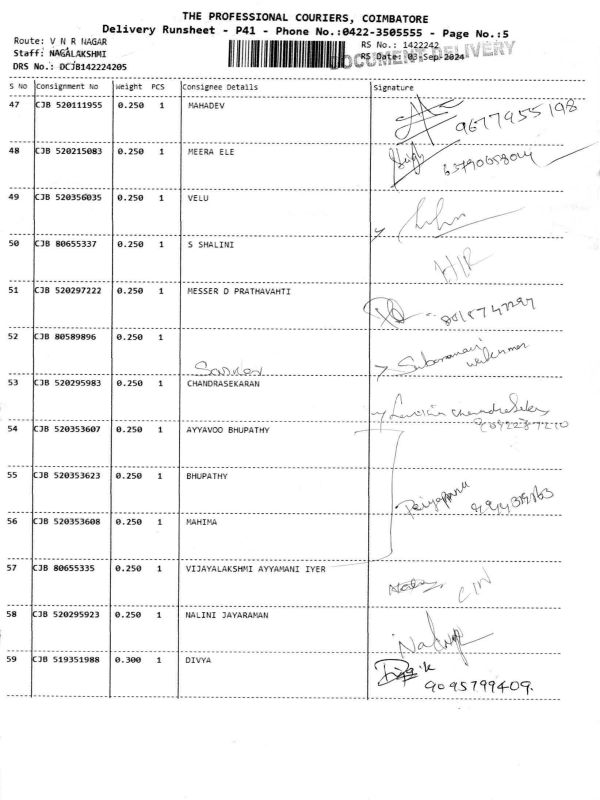 THE PROFESSIONAL COURIERS, COIMBATORE
Delivery Runsheet - P41 - Phone No.:0422-3505555 - Page No.:5
Route: V N R NAGAR
RS No.: 1422242
DOCUMENT DELIVERY
Staff: NAGALAKSHMI
RS Date: 03-Sep-2024
DRS No.: DCJB142224205
S No Consignment No Weight PCS Consignee Details Signature
47 CJB 520111955 0.250 1 MAHADEV
9677955198
48 CJB 520215083 0.250 1 MEERA ELE
49 CJB 520356035 0.250 1 VELU
50 CJB 80655337 0.250 1 S SHALINI
H/R
51 CJB 520297222 0.250 1 MESSER D PRATHAVAHTI
52 CJB 80589896 0.250 1
53 CJB 520295983 0.250 1 CHANDRASEKARAN
54 CJB 520353607 0.250 1 AYYAVOO BHUPATHY
55 CJB 520353623 0.250 1 BHUPATHY
56 CJB 520353608 0.250 1 MAHIMA
57 CJB 80655335 0.250 1 VIJAYALAKSHMI AYYAMANI IYER
58 CJB 520295923 0.250 1 NALINI JAYARAMAN
59 CJB 519351988 0.300 1 DIVYA
9095799409.